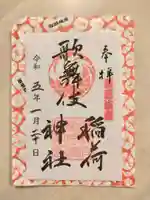 奉拝
歌舞伎
稲荷
神社
令和五年一月二十日